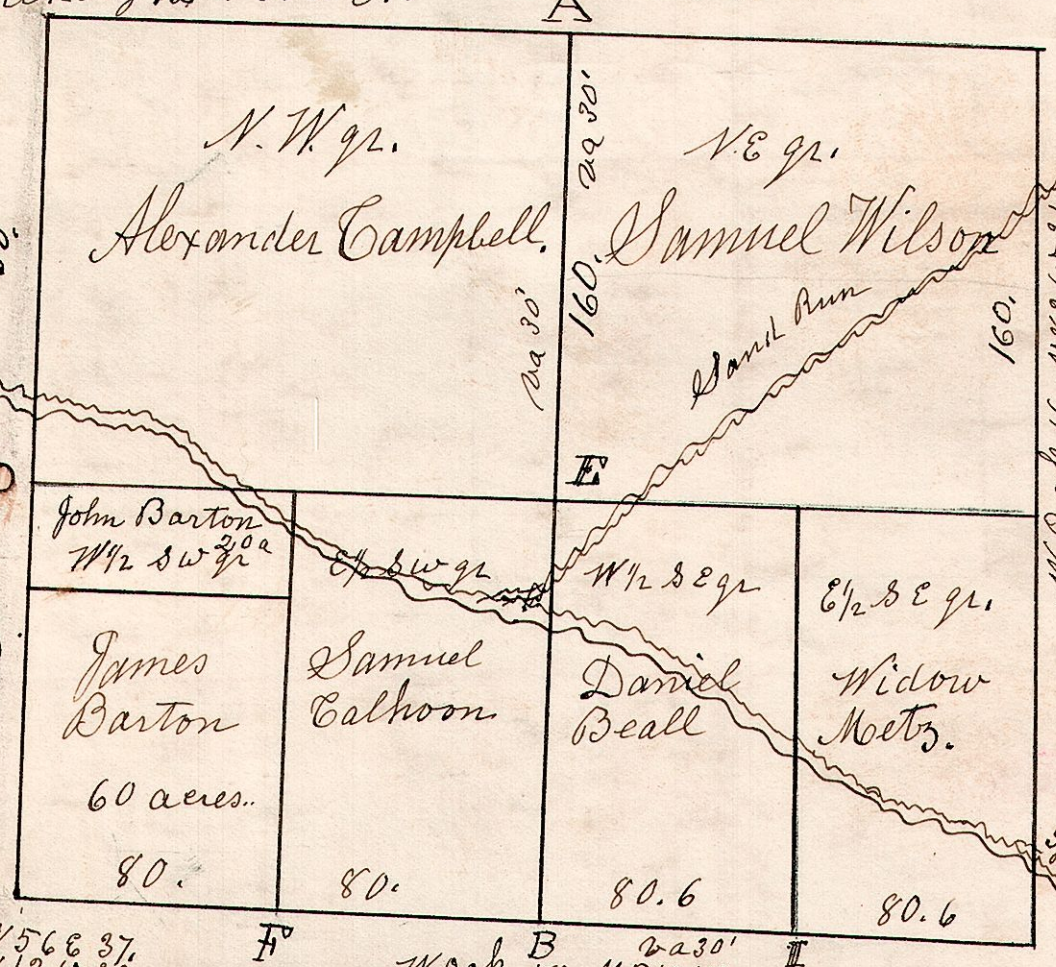 A
N.W. qr.
Alexander Campbell.
va 30'
va 30'
160.
N.E qr.
Samuel Wilson
Sand Run
160.
E
John Barton
W 1/2 S W qr 20 a
E 1/2 S W qr
W 1/2 S E qr
E 1/2 S E qr.
James
Barton
60 acres..
80.
Samuel
Calhoon
80.
Daniel
Beall
80.6
Widow
Metz.
80.6
56 E 37.
F
B
va 30'
I